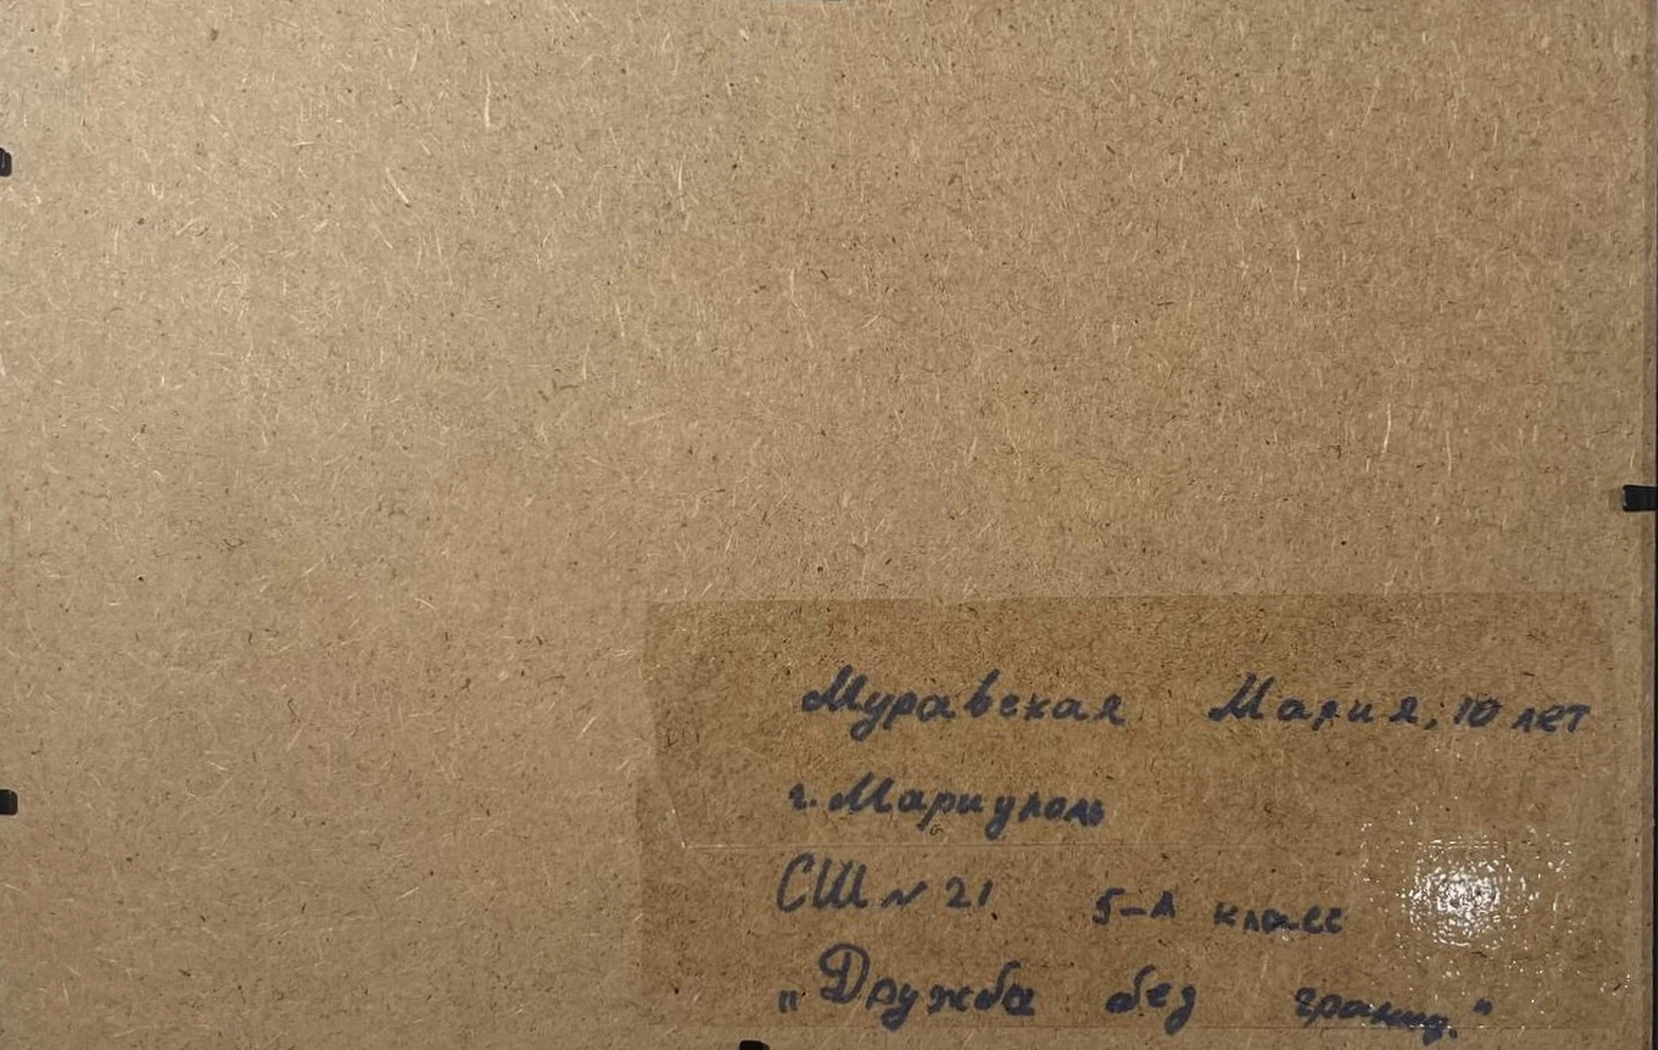 Муравская Мария, 10 лет
г. Мариуполь
СШ № 21 5-А класс
„Дружба без границ."